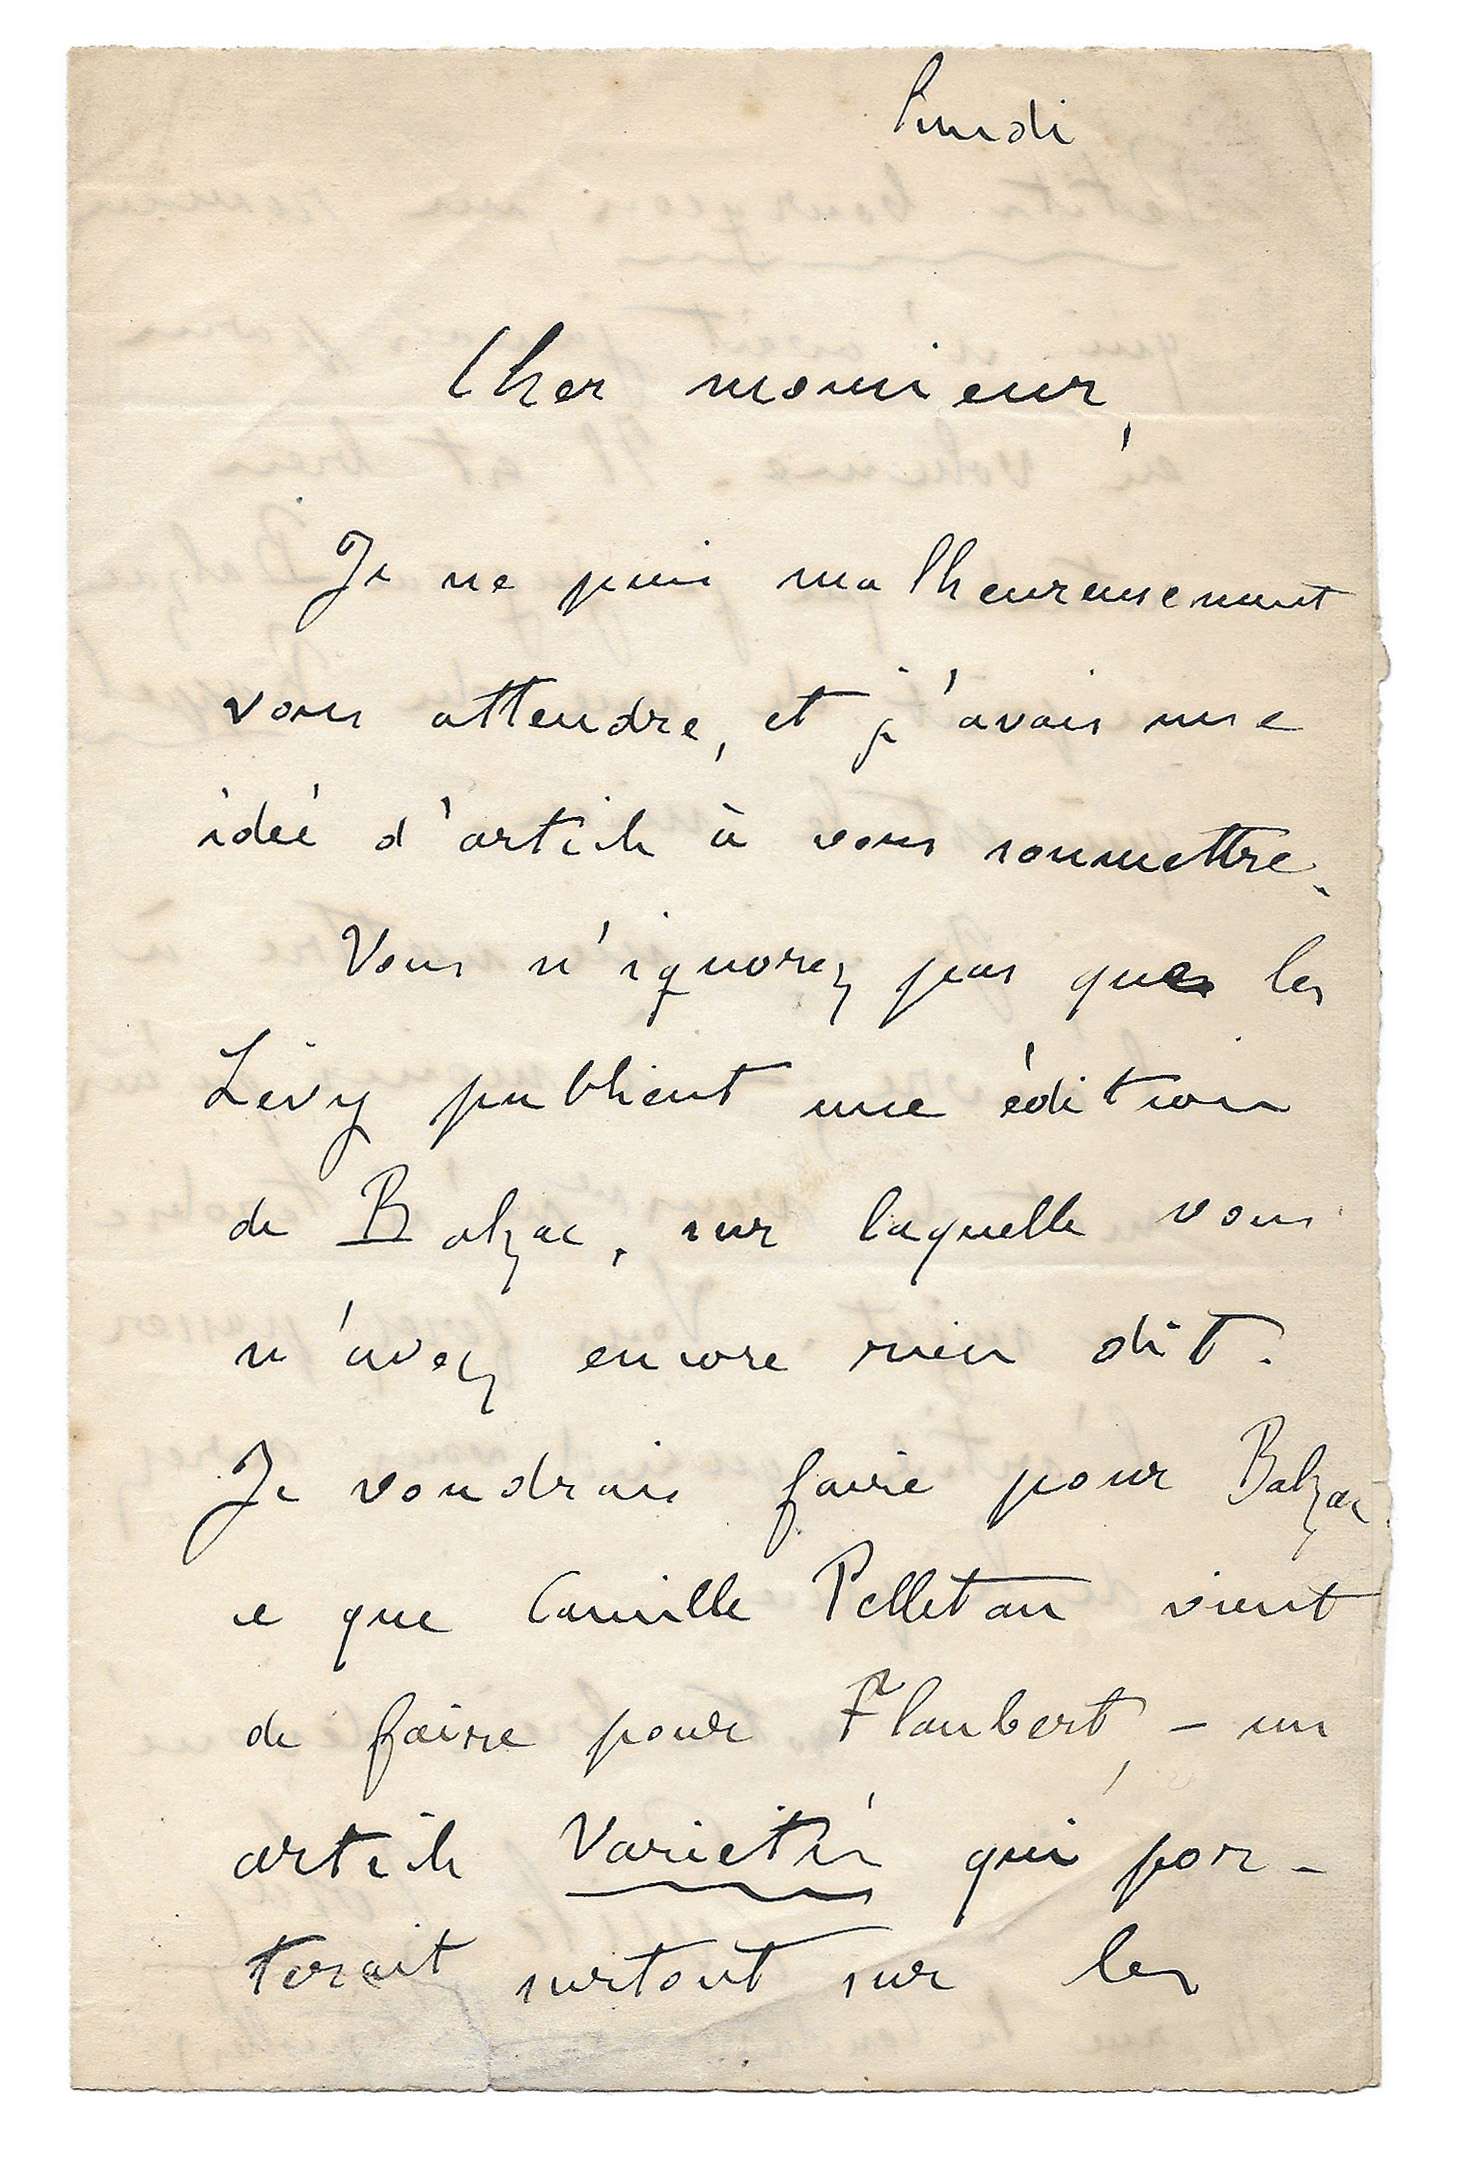 Lundi
Cher monsieur,
Je ne puis malheureusement
vous attendre, et j'avais une
idée d'article à vous soumettre.
Vous n'ignorez pas que les
Lévy publient une édition
de Balzac, sur laquelle vous
n'avez encore rien dit.
Je voudrais faire pour Balzac
ce que Camille Pelletan vient
de faire pour Flaubert, – un
article Variétés qui por-
terait surtout sur les